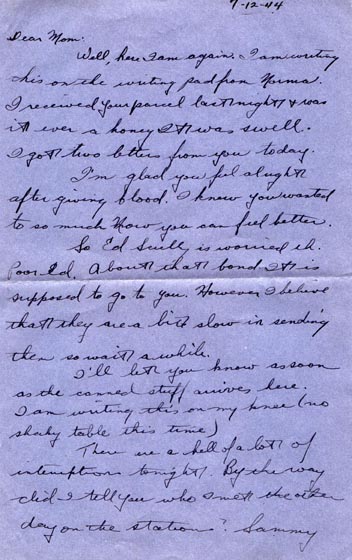 7-12-44
Dear Mom.
Well, here I am again. I am writing
this on the writing pad from Norma.
I received your parcel last night & was
it ever a honey It was swell.
I got two letters from you today.
I'm glad you feel alright
after giving blood. I knew you wanted
to so much Now you can feel better.
So Ed is worried eh.
Poor Ed. About that bond It is
supposed to go to you. However I believe
that they are a bit slow in sending
them so wait a while.
I'll let you know as soon
as the canned stuff arrives here.
I am writing this on my knee (no
shaky table this time)
There are a hell of a lot of
interruptions tonight. By the way
did I tell you who I met the other
day on the station? Sammy